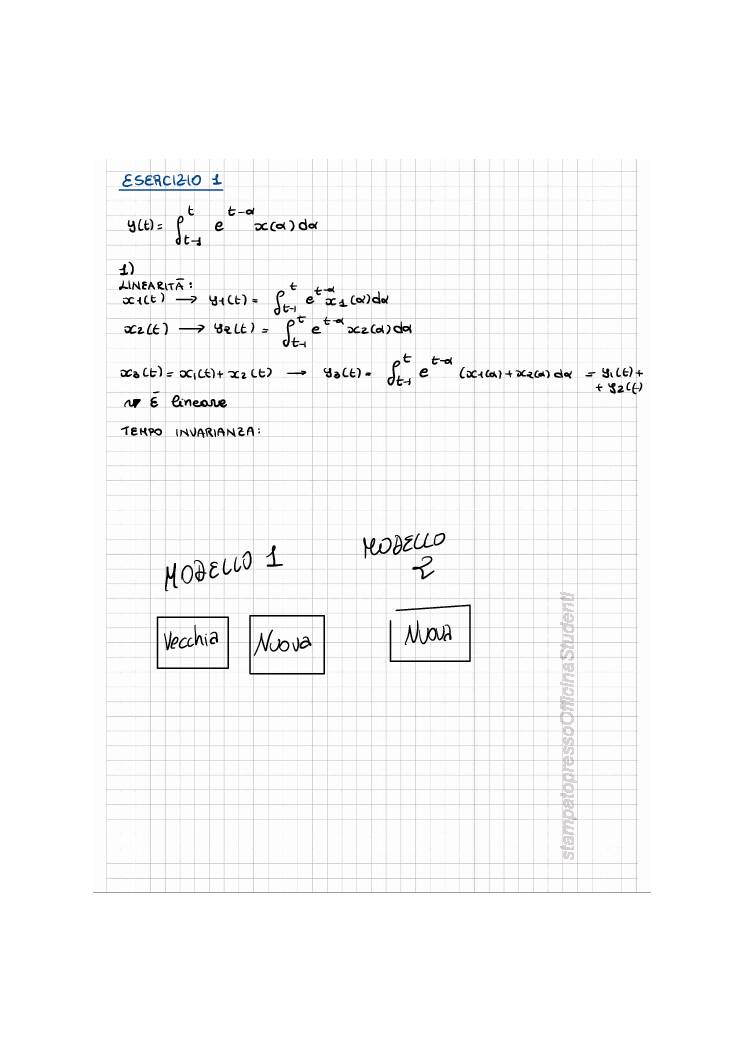 ESERCIZIO 1
y(t) = ∫_{t-1}^{t} e^{t-α} x(α) dα
1)
LINEARITÀ:
x1(t) → y1(t) = ∫_{t-1}^{t} e^{t-α} x1(α) dα
x2(t) → y2(t) = ∫_{t-1}^{t} e^{t-α} x2(α) dα
x3(t) = x1(t) + x2(t) → y3(t) = ∫_{t-1}^{t} e^{t-α} (x1(α) + x2(α) dα = y1(t) +
+ y2(t)
È lineare
TEMPO INVARIANZA:
MODELLO 1
MODELLO
2
Vecchia Nuova Nuova
stampatopressoOfficinaStudenti